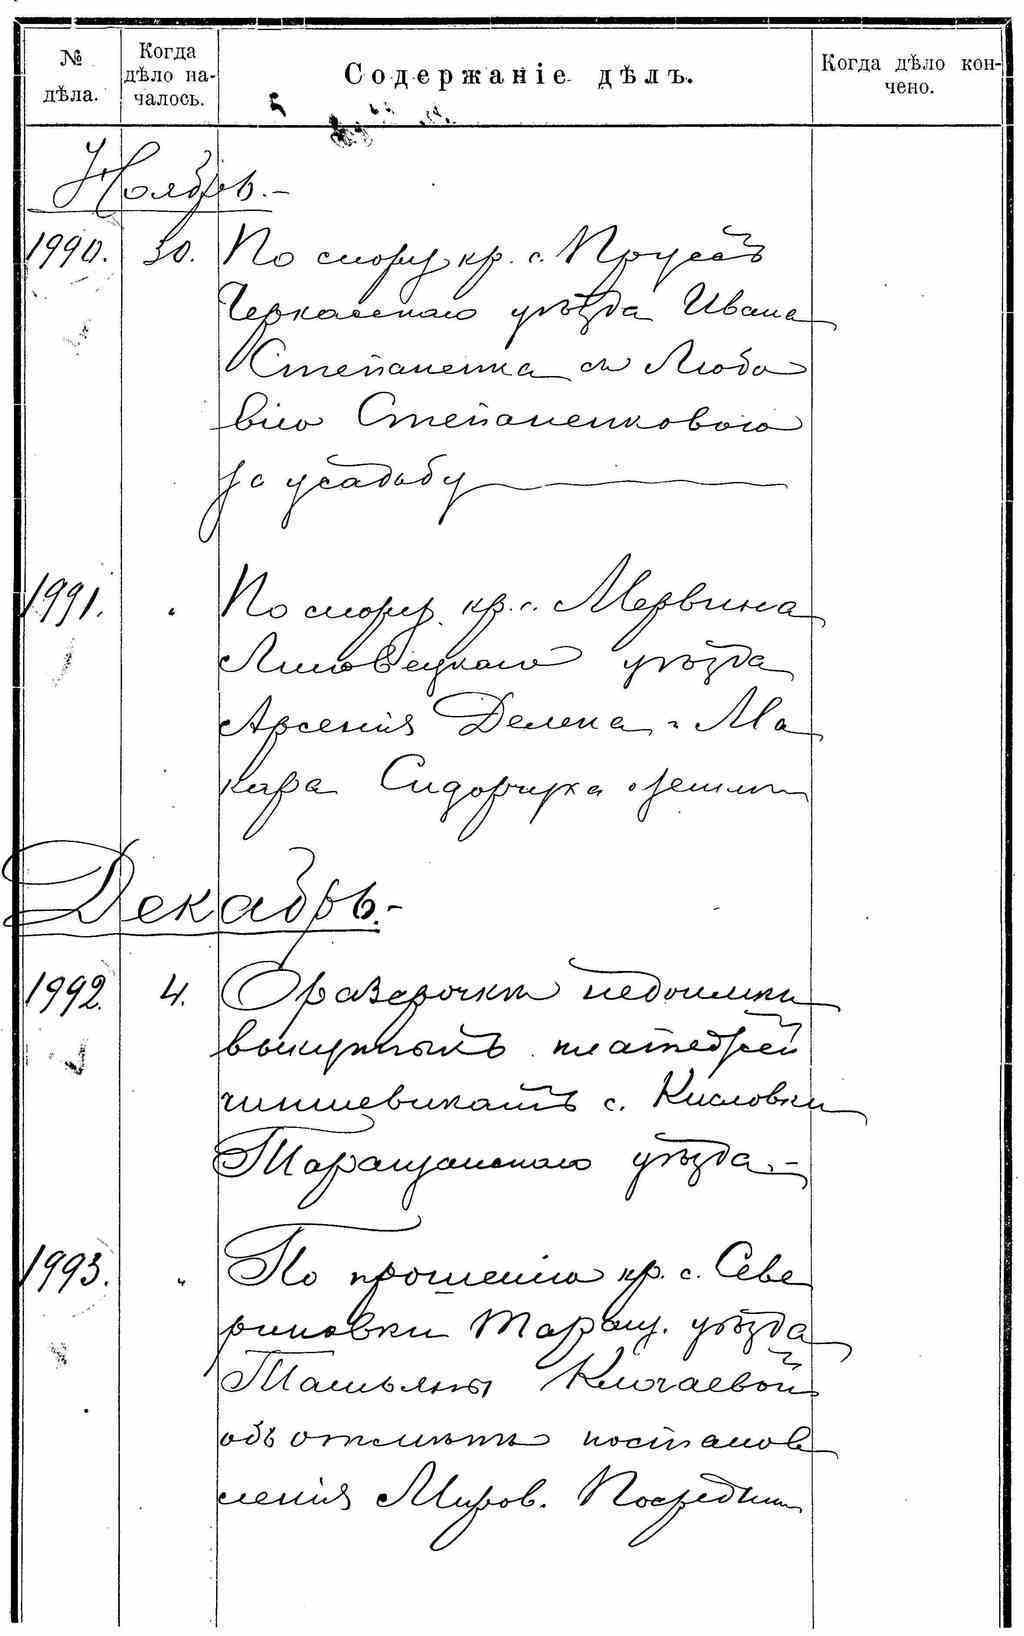 № дѣла.
Когда дѣло началось.
Содержаніе дѣлъ.
Когда дѣло кончено.
Ноябрь.-
1990. 30. По спору кр. с. Прусъ
Черкасскаго уѣзда Ивана
Степаненка съ Любо
вію Степаненковою
за усадьбу
1991. " По спору кр. с. Мервина
Липовецкаго уѣзда
Арсенія Делена и Ма
кара Сидорчука о землѣ
Декабрь.-
1992. 4. О разсрочкѣ недоимки
выкупныхъ платежей
чиншевикамъ с. Кисловки
Таращанскаго уѣзда.-
1993. " По прошенію кр. с. Севе
риновки Таращ. уѣзда
Татьяны Ключаевой
объ отмѣнѣ постанов
ленія Миров. Посредника